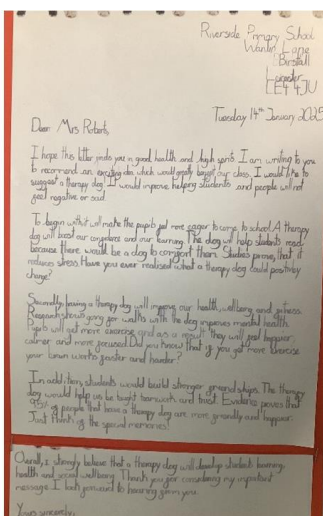 Riverside Primary School
Wanlip Lane
Birstall
Leicester
LE4 4JU
Tuesday 14th January 2025
Dear Mrs Roberts,
I hope this letter finds you in good health and high spirits. I am writing to you
to recommend an exciting idea which would greatly benefit our class. I would like to
suggest a therapy dog. It would improve, helping students and people will not
feel negative or sad.
To begin with it will make the pupils get more eager to come to school. A therapy
dog will boost our confidence and our learning. The dog will help students read
because there would be a dog to comfort them. Studies prove, that it
reduces stress. Have you ever realised what a therapy dog could positively
change?
Secondly, having a therapy dog will improve our health, wellbeing and fitness.
Research shows going for walks with the dog improves mental health.
Pupils will get more exercise and as a result they will feel happier,
calmer and more focused. Did you know that if you get more exercise
your brain works faster and harder?
In addition, students would build stronger friendships. The therapy
dog would help us be taught teamwork and trust. Evidence proves that
of people that have a therapy dog are more friendly and happier.
Just think of the special memories!
Overall, I strongly believe that a therapy dog will develop students learning,
health and social wellbeing. Thank you for considering my important
message. I look forward to hearing from you.
Yours sincerely,